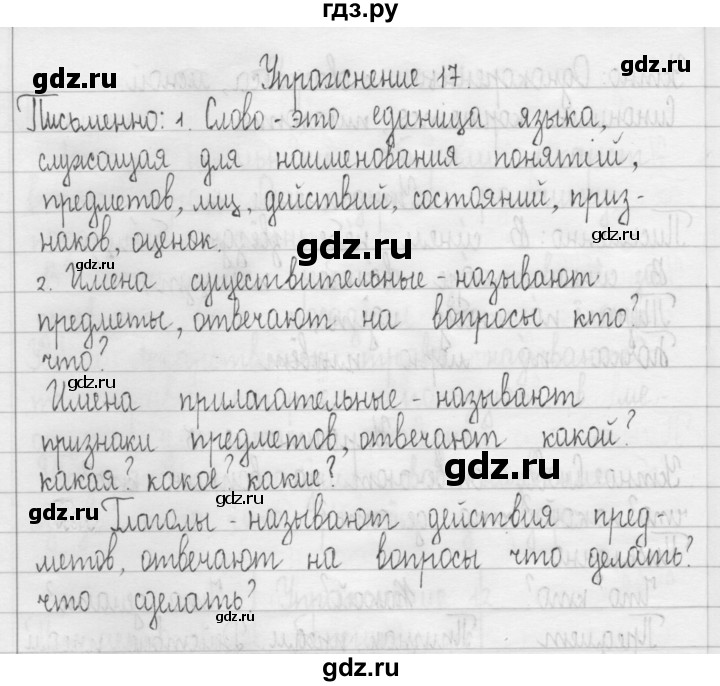 гдз.ру
gdz.ru
Упражнение 17.
Письменно: 1. Слово - это единица языка,
служащая для наименования понятий,
предметов, лиц, действий, состояний, приз-
наков, оценок.
gdz.ru
gdz.ru
2. Имена существительные - называют
предметы, отвечают на вопросы кто?
что?
gdz.ru
Имена прилагательные - называют
признаки предметов, отвечают какой?
какая? какое? какие?
gdz.ru
gdz.ru
gdz.ru
Глаголы - называют действия пред-
метов, отвечают на вопросы что делать?
что сделать?
gdz.ru
gdz.ru
gdz.ru